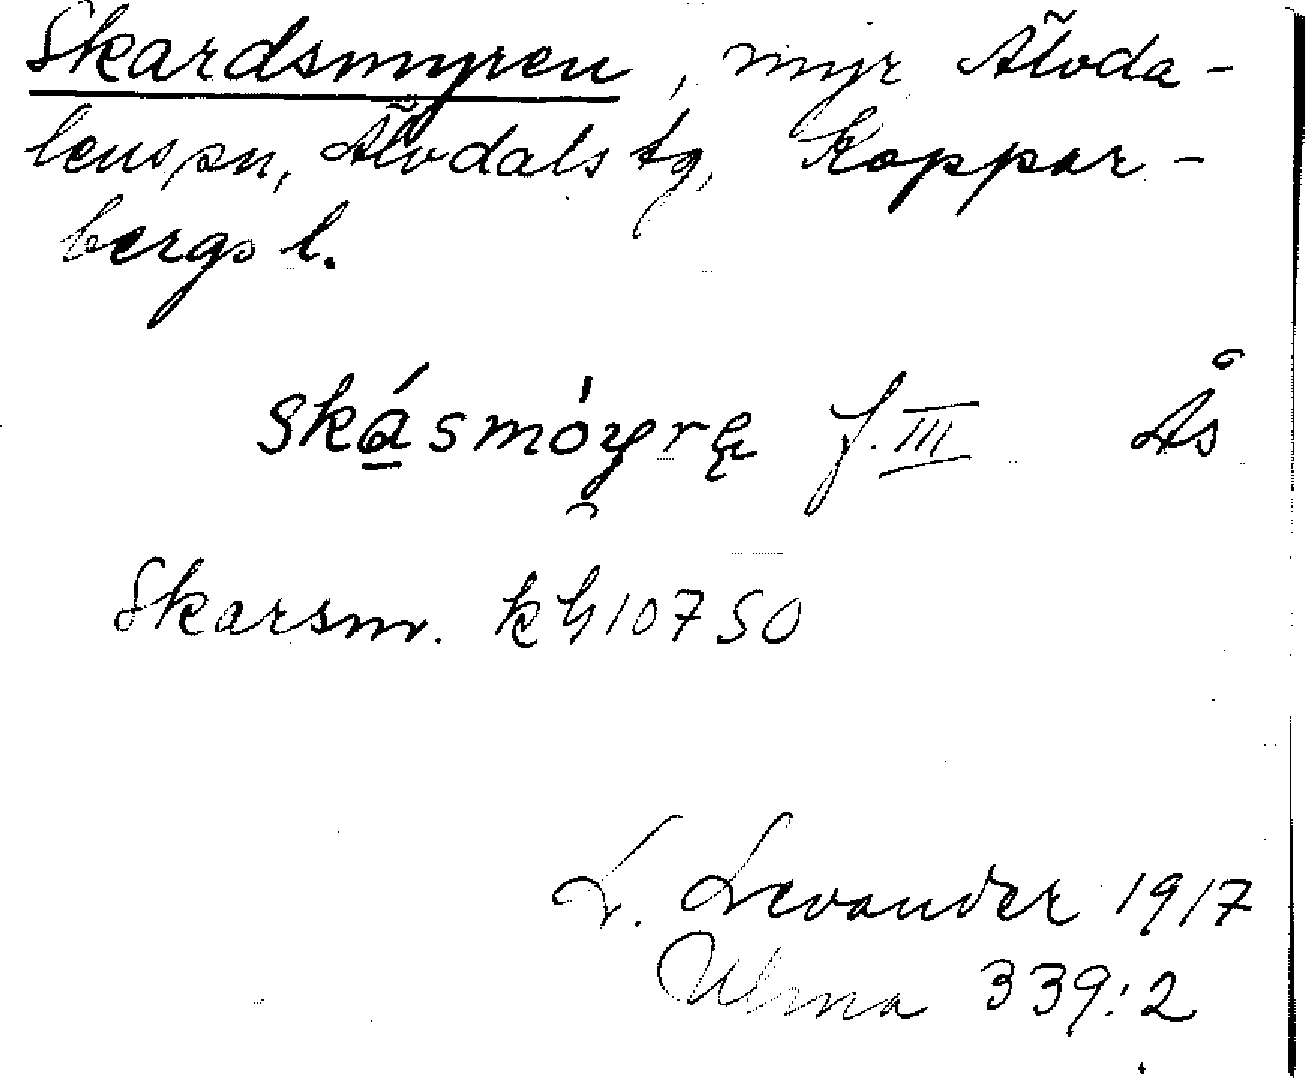 Skardsmyren, myr Älvda-
lens sn, Älvdals tg, Koppar-
bergs l.
skásmóyrę f. III Ås
Skarsm. kh 10750
L. Levander 1917
Ulma 339:2